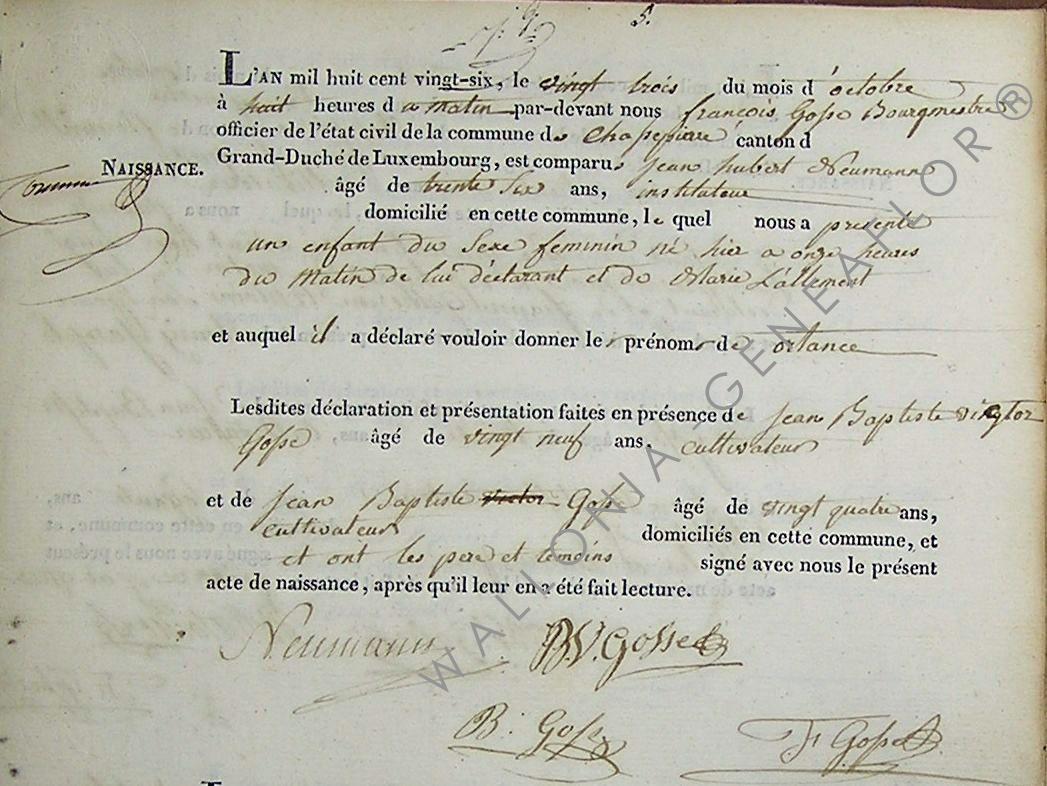 n.° 9. 5.
L'AN mil huit cent vingt-six, le vingt trois du mois d'octobre
à huit heures d u matin par-devant nous françois Gosse Bourgmestre
officier de l'état civil de la commune de canton d
NAISSANCE. Grand-Duché de Luxembourg, est comparu Jean hubert Neumann
âgé de trente Six ans, instituteur
domicilié en cette commune, le quel nous a presenté
un enfant du Sexe feminin né hier a onze heures
du Matin de lui déclarant et de Marie Lallement
et auquel il a déclaré vouloir donner le prénom de ortance
Lesdites déclaration et présentation faites en présence de Jean Baptiste
Gosse âgé de vingt neuf ans, cultivateur
et de Jean Baptiste victor Gosse âgé de vingt quatre ans,
cultivateur domiciliés en cette commune, et
et ont les pere et temoins signé avec nous le présent
acte de naissance, après qu'il leur en a été fait lecture.
Neumann B.V. Gosse
B. Gosse F Gosse
WALLONIA GENEAFLOR ®